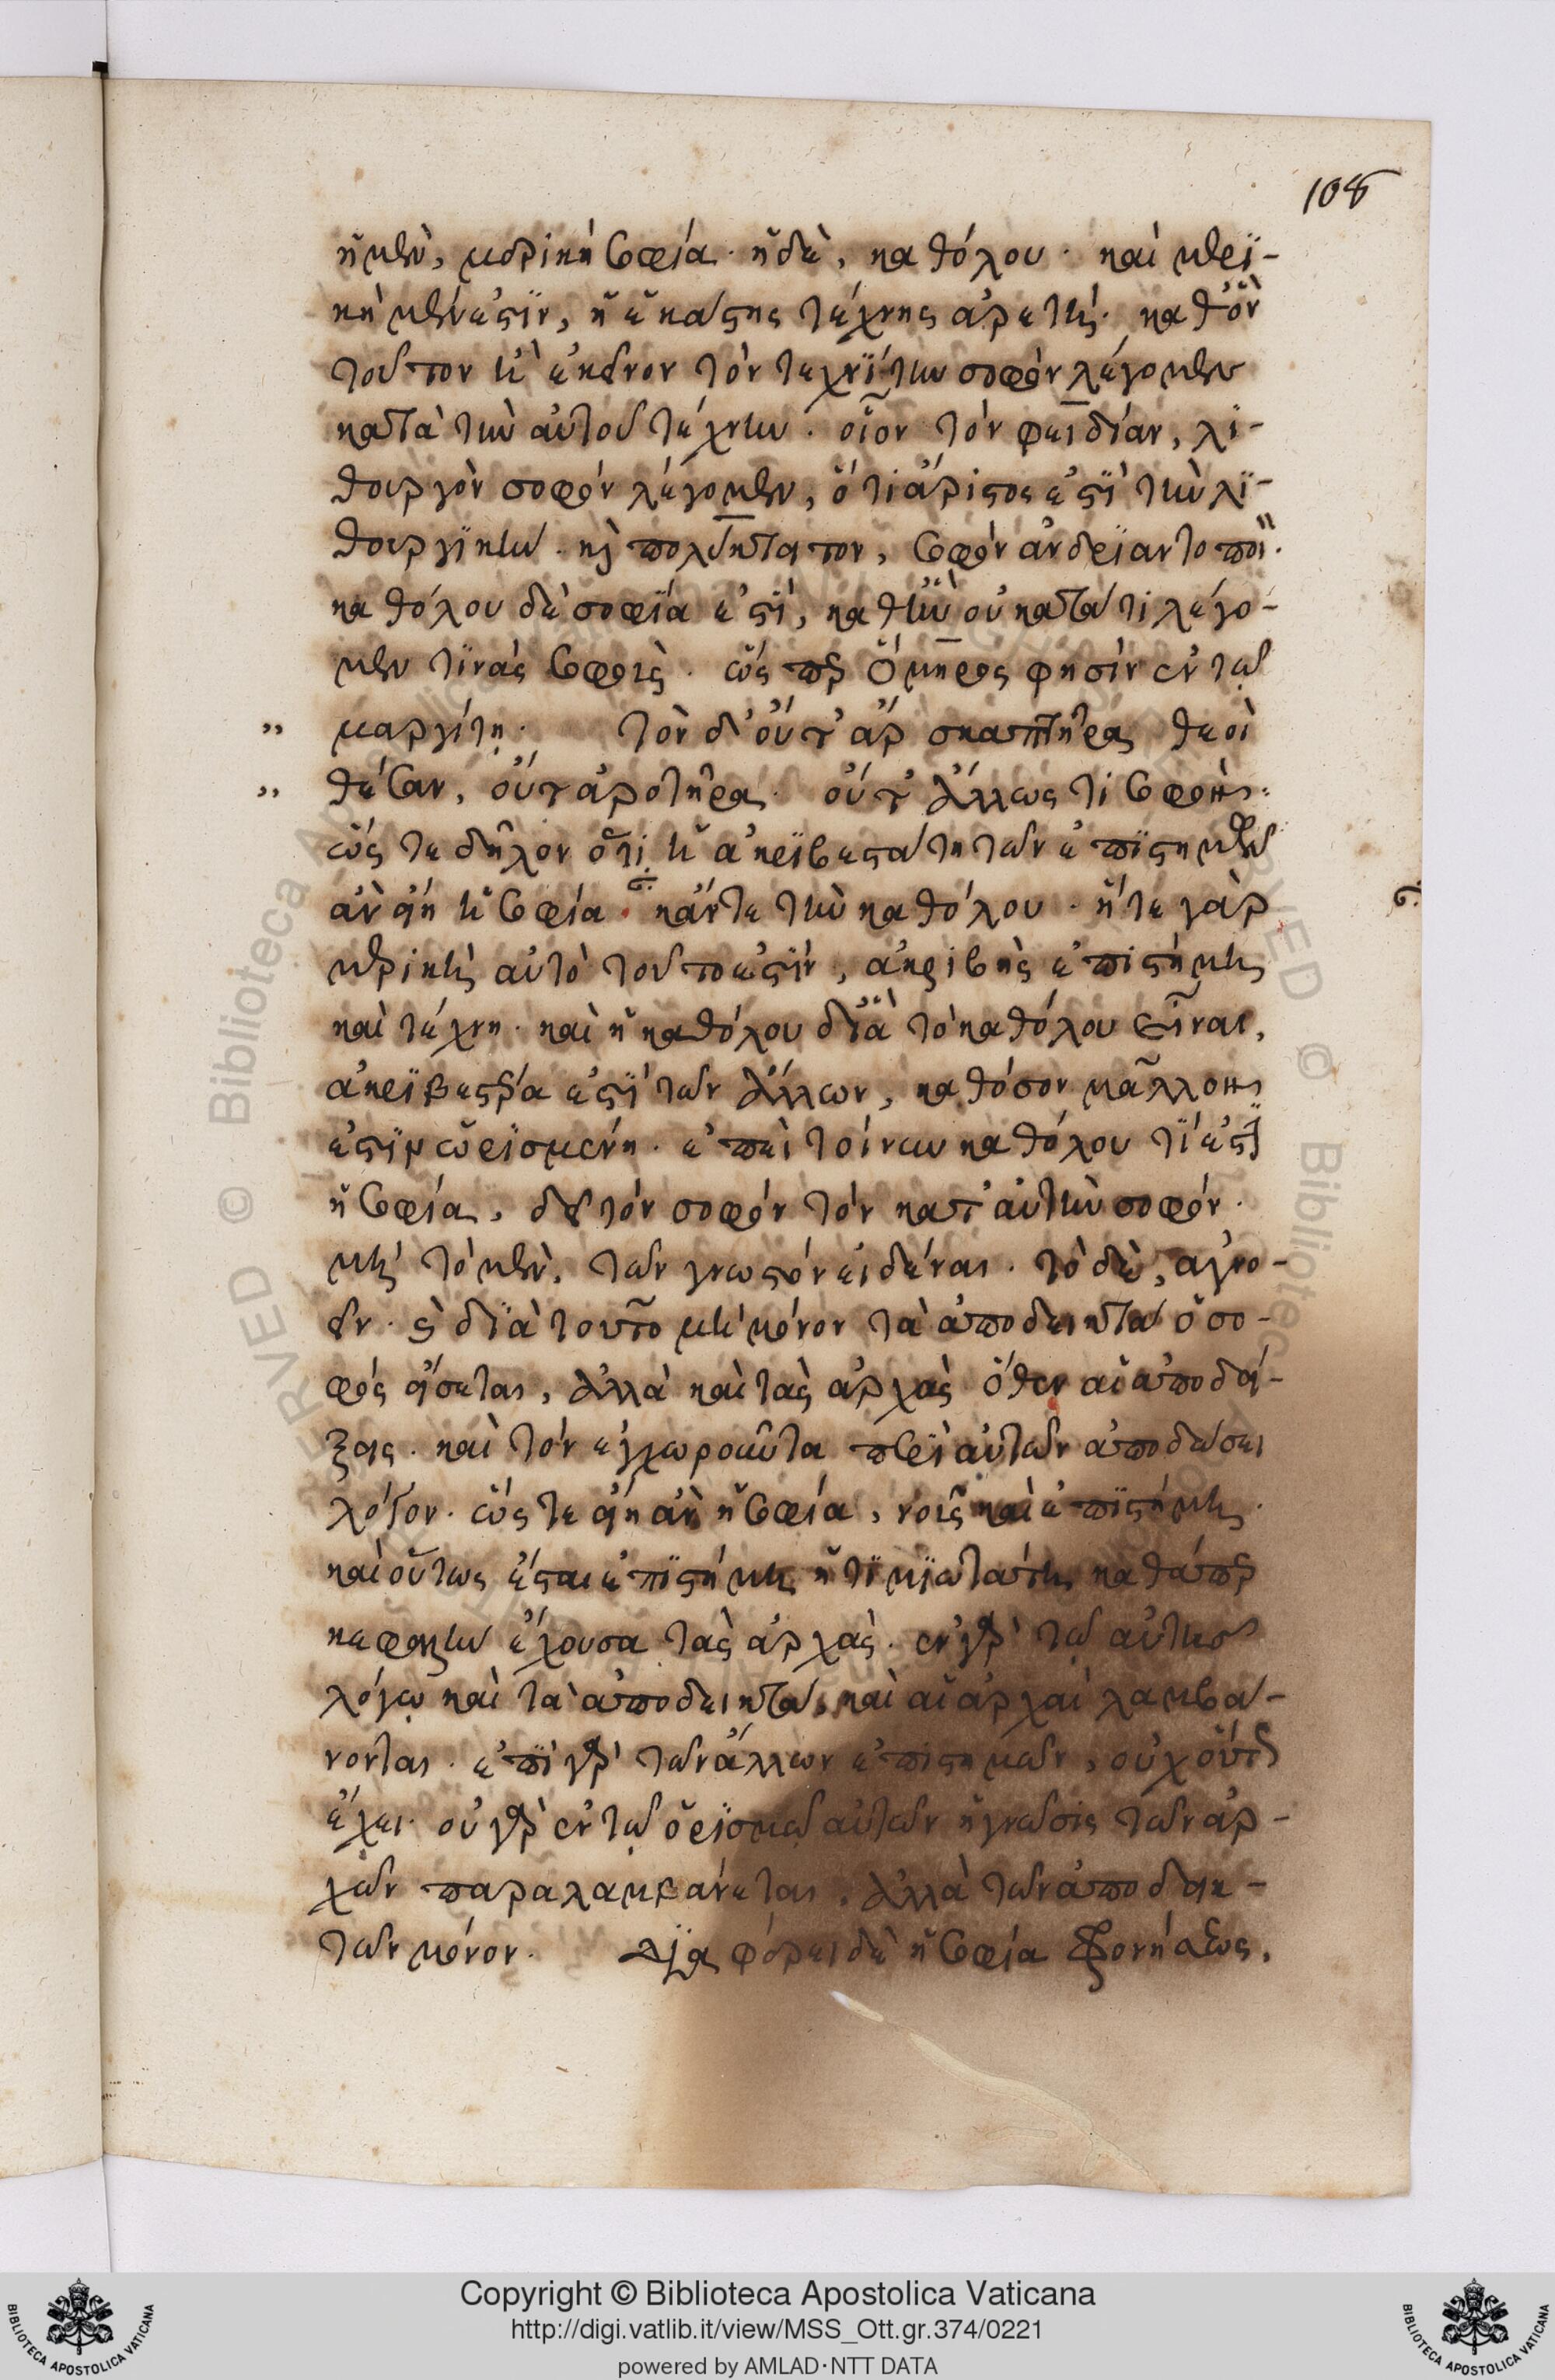 108
ἡ μὲν, μερικὴ σοφία· ἡ δὲ, καθόλου· καὶ μερι-
κὴ μέν ἐστιν, ἡ ἑκάστης τέχνης ἀρετή· καθ' ὃν
τρόπον ἢ ἐκεῖνον τὸν τεχνίτην σοφὸν λέγομεν
κατὰ τὴν αὐτοῦ τέχνην· οἷον τὸν φειδίαν, λι-
θουργὸν σοφὸν λέγομεν, ὅτι ἄριστος ἐστὶ τὴν λι-
θουργικήν· καὶ πολύκτατον, σοφὸν ἀνδριαντοποι.
καθόλου δὲ σοφία ἐστὶ, καθ' ἣν οὐ κατά τι λέγο-
μεν τινὰς σοφοὺς· ὥσπερ ὅμηρος φησὶν ἐν τῷ
„ μαργίτῃ· τὸν δ' οὔτ' ἂρ σκαπτῆρα θεοὶ
„ θέσαν, οὔτ' ἀροτῆρα· οὔτ' ἄλλως τι σοφόν:
ὥστε δῆλον ὅτι ἡ ἀκριβεστάτη τῶν ἐπιστημῶν
ἂν εἴη ἡ σοφία· κἄν τε τὴν καθόλου· ἥ τε γὰρ
μερικὴ αὐτὸ τοῦτό ἐστιν, ἀκριβὴς ἐπιστήμη
καὶ τέχνη· καὶ ἡ καθόλου διὰ τὸ καθόλου εἶναι,
ἀκριβεστέρα ἐστὶ τῶν ἄλλων, καθόσον μᾶλλον
ἐστὶν ὡρισμένη· ἐπεὶ τοίνυν καθόλου τί ἐστι
ἡ σοφία, δεῖ τὸν σοφὸν τὸν κατ' αὐτὴν σοφόν·
μὴ τὸ μὲν, τῶν γνωστῶν εἰδέναι· τὸ δὲ, ἀγνο-
εῖν· καὶ διὰ τοῦτο μὴ μόνον τὰ ἀποδεικτὰ ὁ σο-
φὸς εἴσεται, ἀλλὰ καὶ τὰς ἀρχὰς ὅθεν αἱ ἀποδεί-
ξεις· καὶ τὸν ἐγχωροῦντα περὶ αὐτῶν ἀποδώσει
λόγον· ὥστε εἴη ἂν ἡ σοφία, νοῦς καὶ ἐπιστήμη·
καὶ οὕτως ἔσται ἐπιστήμη ἡ τιμιωτάτη καθάπερ
κεφαλὴν ἔχουσα τὰς ἀρχὰς· ἐν γὰρ τῷ αὐτῆς
λόγῳ καὶ τὰ ἀποδεικτὰ, καὶ αἱ ἀρχαὶ λαμβά-
νονται· ἐπὶ γὰρ τῶν ἄλλων ἐπιστημῶν, οὐχ οὕτως
ἔχει· οὐ γὰρ ἐν τῷ ὁρισμῷ αὐτῶν ἡ γνῶσις τῶν ἀρ-
χῶν παραλαμβάνεται· ἀλλὰ τῶν ἀποδεικ-
τῶν μόνον· Διαφέρει δὲ ἡ σοφία φρονήσεως,
Copyright © Biblioteca Apostolica Vaticana
http://digi.vatlib.it/view/MSS_Ott.gr.374/0221
powered by AMLAD·NTT DATA